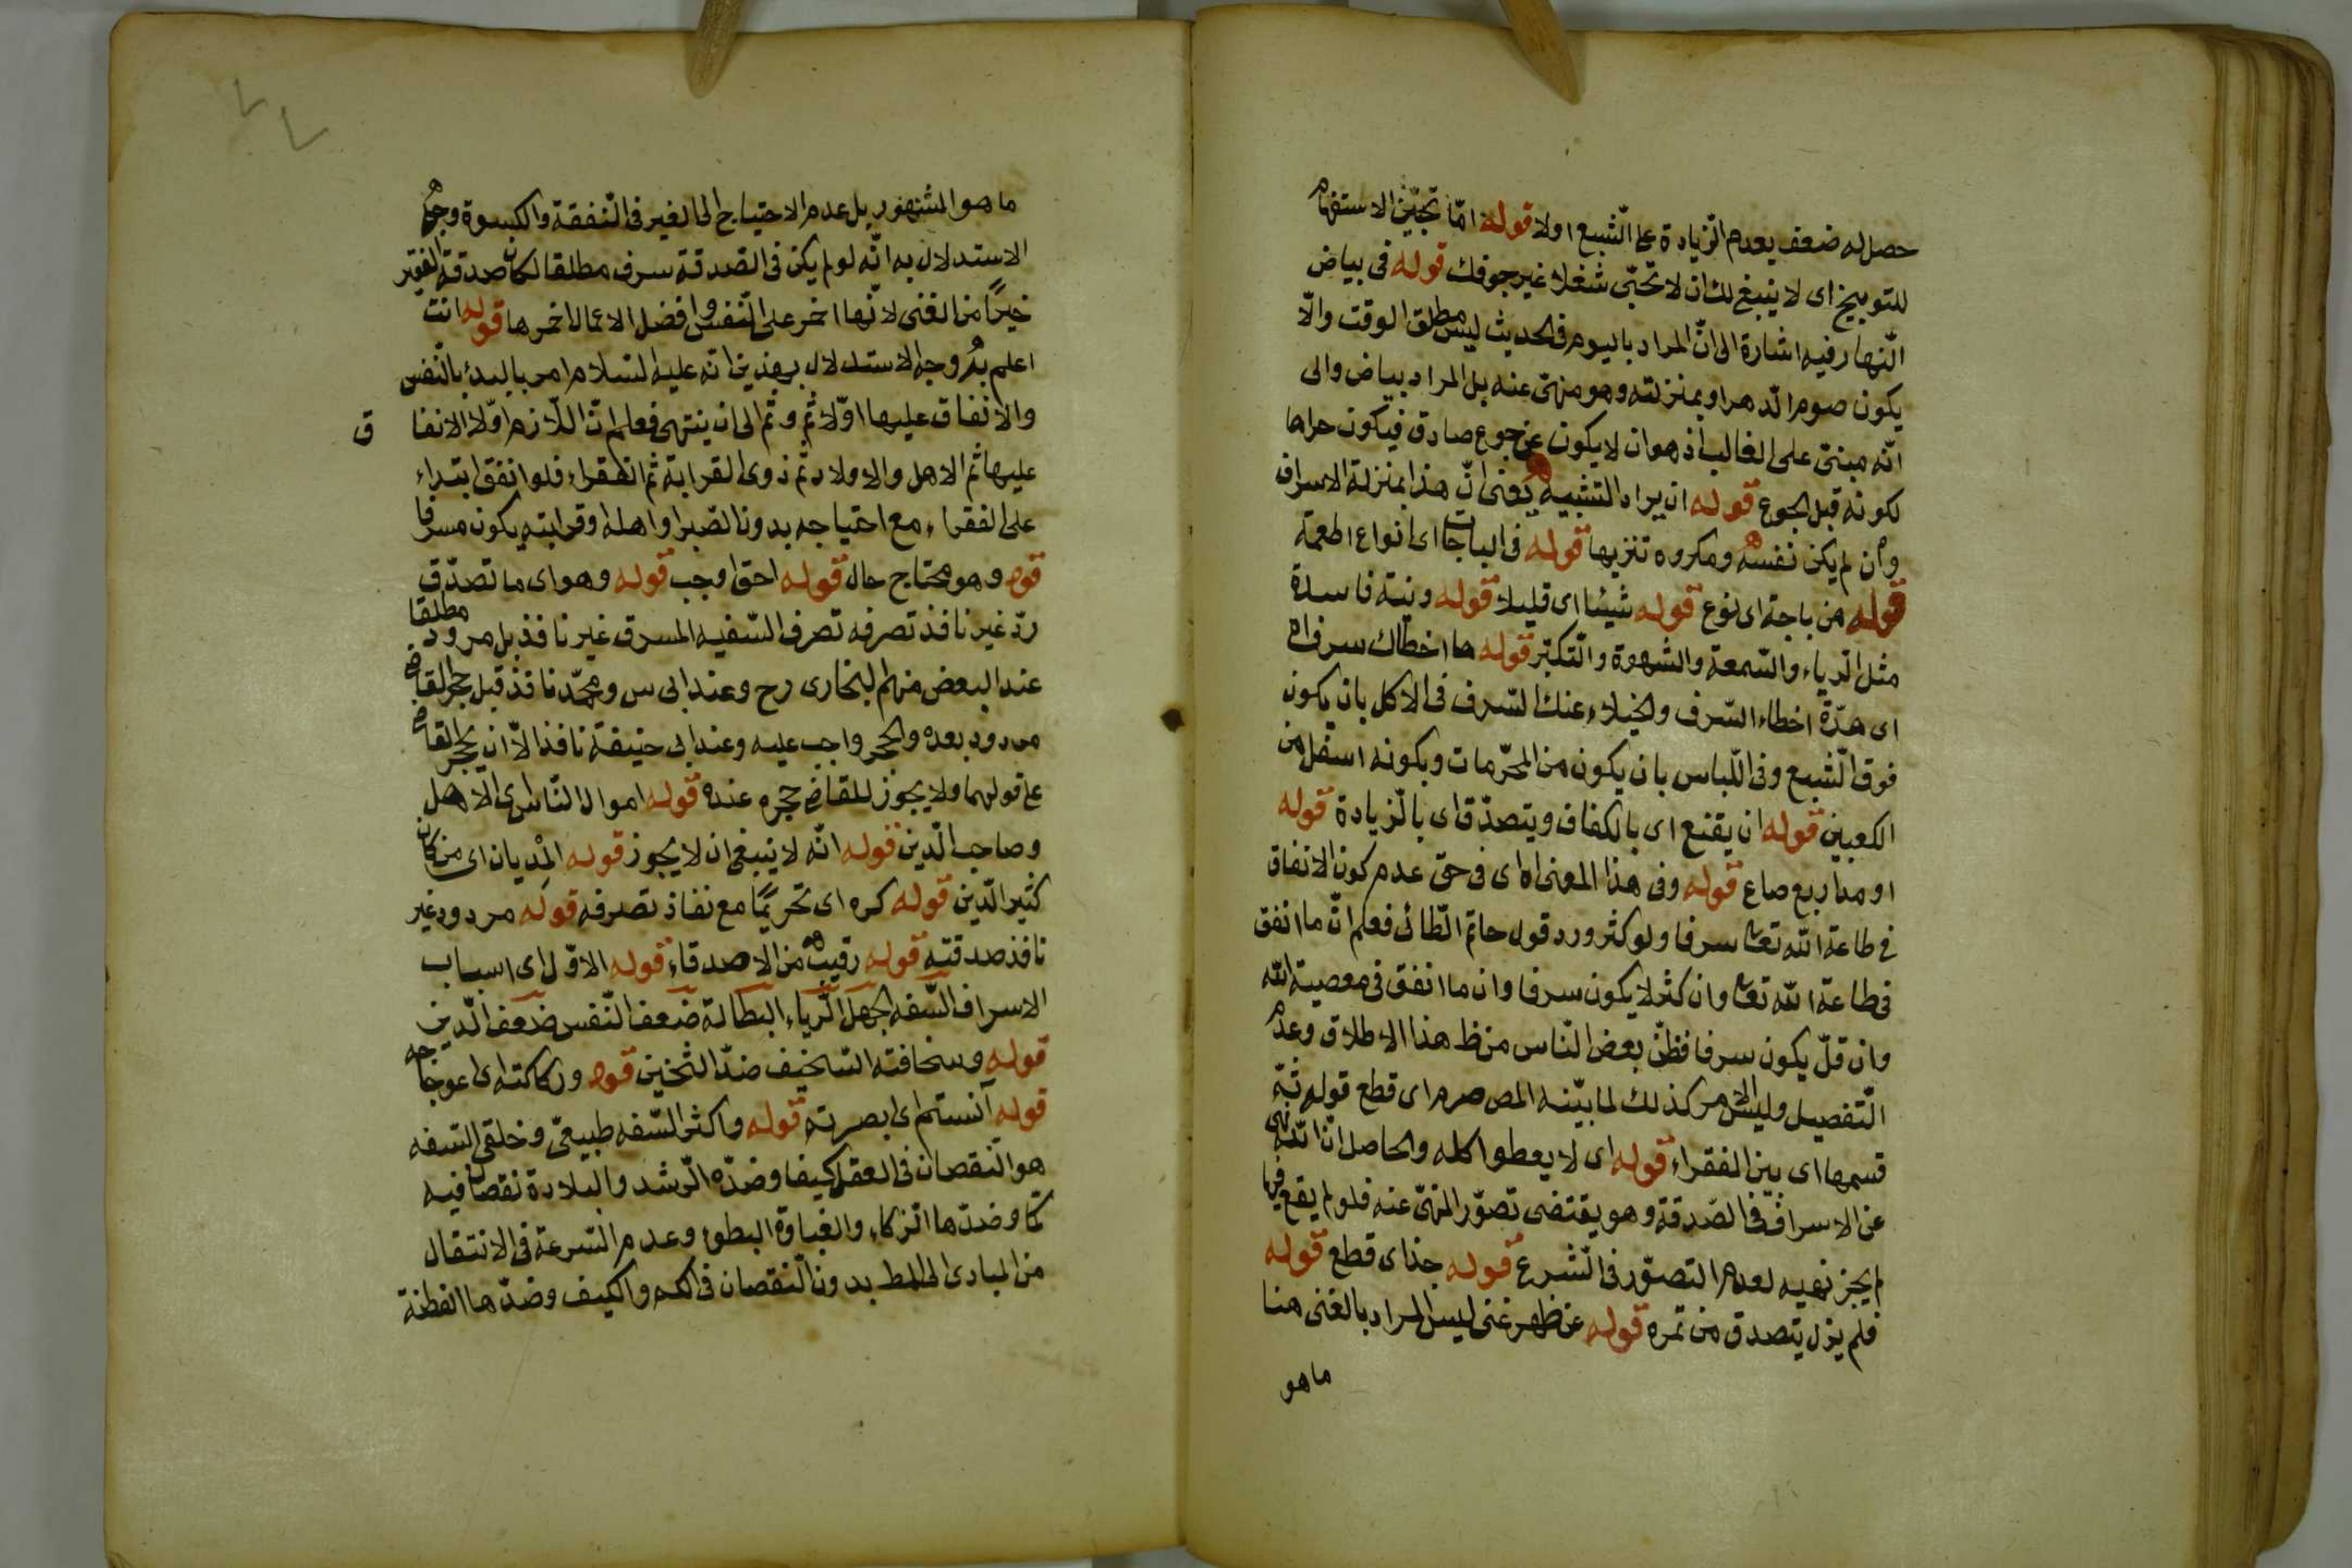 حصل له ضعف بعدم الزيادة على الشبع اولا قوله اما تحبين الاستفهام
للتوبيخ اى لا ينبغى لك ان لا تحبى شغلا غير جوفك قوله فى بياض
النهار فيه اشارة الى ان المراد باليوم فى الحديث ليس مطلق الوقت والا
يكون صوم الدهر او بمنزلته وهو منهى عنه بل المراد بياض والى
انه مبنى على الغالب اذ هو ان لا يكون عن جوع صادق فيكون حراما
لكونه قبل الجوع قوله ان يراد التشبيه يعنى ان هذا بمنزلة الاسراف
وان لم يكن نفسه ومكروه تنزيها قوله فى الباجات اى انواع اطعمة
قوله من باجة اى نوع قوله شيئا اى قليلا قوله ونية فاسدة
مثل الرياء والسمعة والشهوة والتكبر قوله ما اخطاك سرف اه
اى مدة اخطاء السرف والخيلاء عنك السرف فى الاكل بان يكون
فوق الشبع وفى اللباس بان يكون من المحرمات وبكونه اسفل من
الكعبين قوله ان يقنع اى بالكفاف ويتصدق اى بالزيادة قوله
او مد اربع صاع قوله وفى هذا المعنى اه اى فى حق عدم كون الانفاق
فى طاعة الله تعا سرفا ولو كثر ورد قول حاتم الطائى فعلم ان ما انفق
فى طاعة الله تعا وان كثر لا يكون سرفا وان ما انفق فى معصية الله
وان قل يكون سرفا فظن بعض الناس من ظ هذا الاطلاق وعدم
التفصيل وليس الامر كذلك لما بينه المص صرم اى قطع قوله ثمه
قسمها اى بين الفقراء قوله اى لا يعطوا كله والحاصل ان الله نهى
عن الاسراف فى الصدقة وهو يقتضى تصور المنهى عنه فلو لم يقع فيها
لم يجز نهيه لعدم التصور فى الشرع قوله جذ اى قطع قوله
فلم يزل يتصدق من تمره قوله عن ظهر غنى ليس المراد بالغنى هنا
ما هو
ما هو المشهور بل عدم الاحتياج الى الغير فى النفقة والكسوة وجه
الاستدلال به انه لو لم يكن فى الصدقة سرف مطلقا لكان صدقة الفقير
خيرا من الغنى لانها احمز على النفس وافضل الاعمال احمزها قوله انت
اعلم به وجه الاستدلال بهذين انه عليه السلام امر بالبدء بالنفس
والانفاق عليها اولا ثم و ثم الى ان ينتهى فعلم ان اللازم اولا الانفا
ق
عليها ثم الاهل والاولاد ثم ذوى القرابة ثم الفقراء فلو انفق ابتداء
على الفقراء مع احتياجه بدون الصبر او اهله وقرابته يكون مسرفا
قوله وهو محتاج حال قوله احق اوجب قوله وهو اى ما تصدق
رد غير نافذ تصرفه تصرف السفيه المسرف غير نافذ بل مردود مطلقا
عند البعض منهم البخارى رح وعند ابى س ومحمد نافذ قبل حجر القاضى
مردود بعده والحجر واجب عليه وعند ابى حنيفة نافذ الا ان يحجر القاضى
على قولهما ولا يجوز للقاضى حجره عنده قوله اموال الناس اى الاهل
وصاحب الدين قوله انه لا ينبغى ان لا يجوز قوله المديان اى من كان
كثير الدين قوله كره اى تحريما مع نفاذ تصرفه قوله مردود غير
نافذ صدقته قوله رقيب من الاصدقاء قوله الاول اى اسباب
الاسراف السفه الجهل الرياء البطالة ضعف النفس ضعف الدين
قوله وسخافته السخيف ضد الثخين قوله وركاكته اى اعوجاجه
قوله آنستم اى ابصرتم قوله واكثر السفه طبيعى وخلقى السفه
هو النقصان فى العقل كيفا وضده الرشد والبلادة نقصان فيه
كما وضدها الزكاء والغباوة البطوء وعدم السرعة فى الانتقال
من المبادى الى المط بدون النقصان فى الكم والكيف وضدها الفطنة